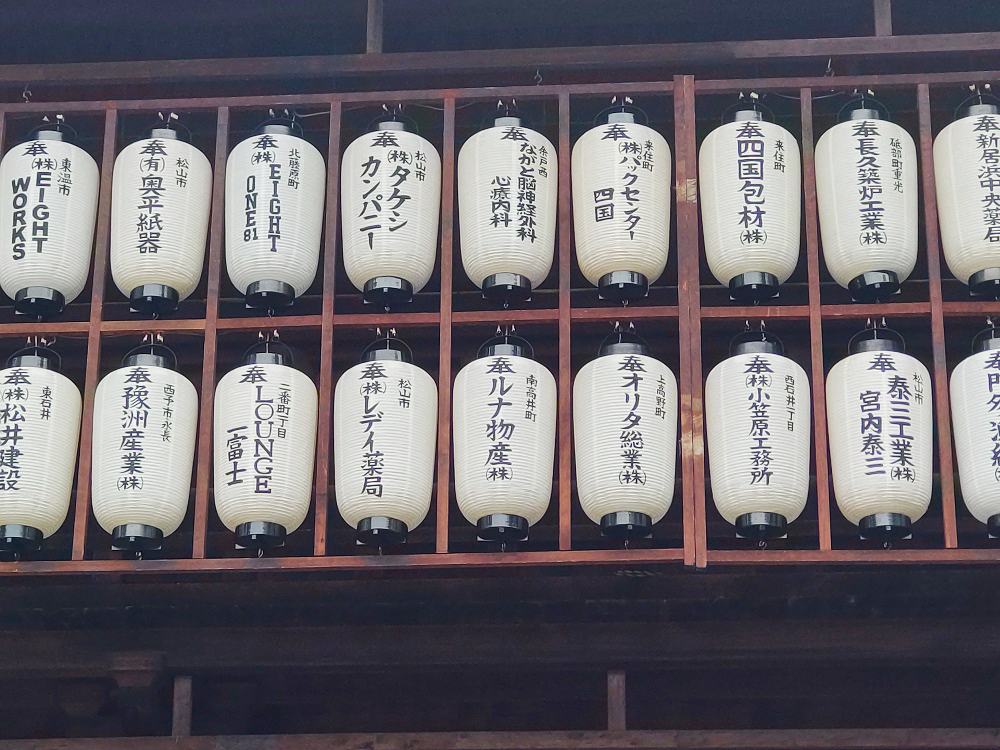 奉
東温市
(株)EIGHT
WORKS
奉
松山市
(有)奥平紙器
奉
北藤原町
(株)EIGHT
ONE81
奉
松山市
(株)タケシ
カンパニー
奉
余戸西
ながと脳神経外科
心療内科
奉
来住町
(株)パックセンター
四国
奉
来住町
四国包材(株)
奉
砥部町重光
長久築炉工業(株)
奉
新居浜中央薬局
奉
東石井
(株)松井建設
奉
西予市永長
豫洲産業(株)
奉
二番町二丁目
LOUNGE
富士
奉
松山市
(株)レデイ薬局
奉
南高井町
ルナ物産(株)
奉
上高野町
オリタ総業(株)
奉
西石井一丁目
(株)小笠原工務所
奉
松山市
泰三工業(株)
宮内泰三
奉